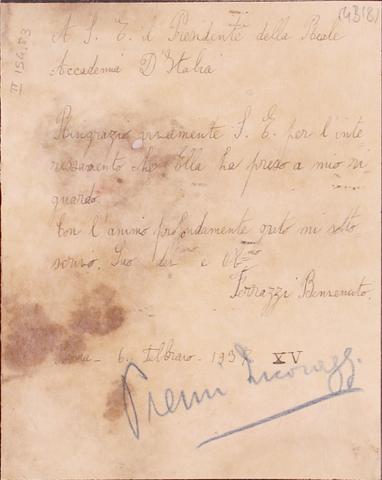 (4318)
II 154,53
A S. E. il Presidente della Reale
Accademia D'Italia
Ringrazio vivamente S. E. per l'inte
ressamento che Ella ha preso a mio ri-
guardo.
Con l'animo profondamente grato mi sotto
scrivo. Suo dev.mo e
Terrazzi Benvenuto.
6. Febbraio. 193 XV
Premi Incoragg.